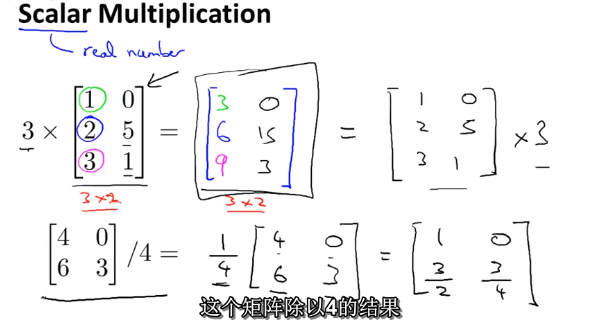 Scalar Multiplication
real number
3 × [1 0; 2 5; 3 1] = [3 0; 6 15; 9 3] = [1 0; 2 5; 3 1] × 3
3×2 3×2
[4 0; 6 3] /4 = 1/4 [4 0; 6 3] = [1 0; 3/2 3/4]
这个矩阵除以4的结果